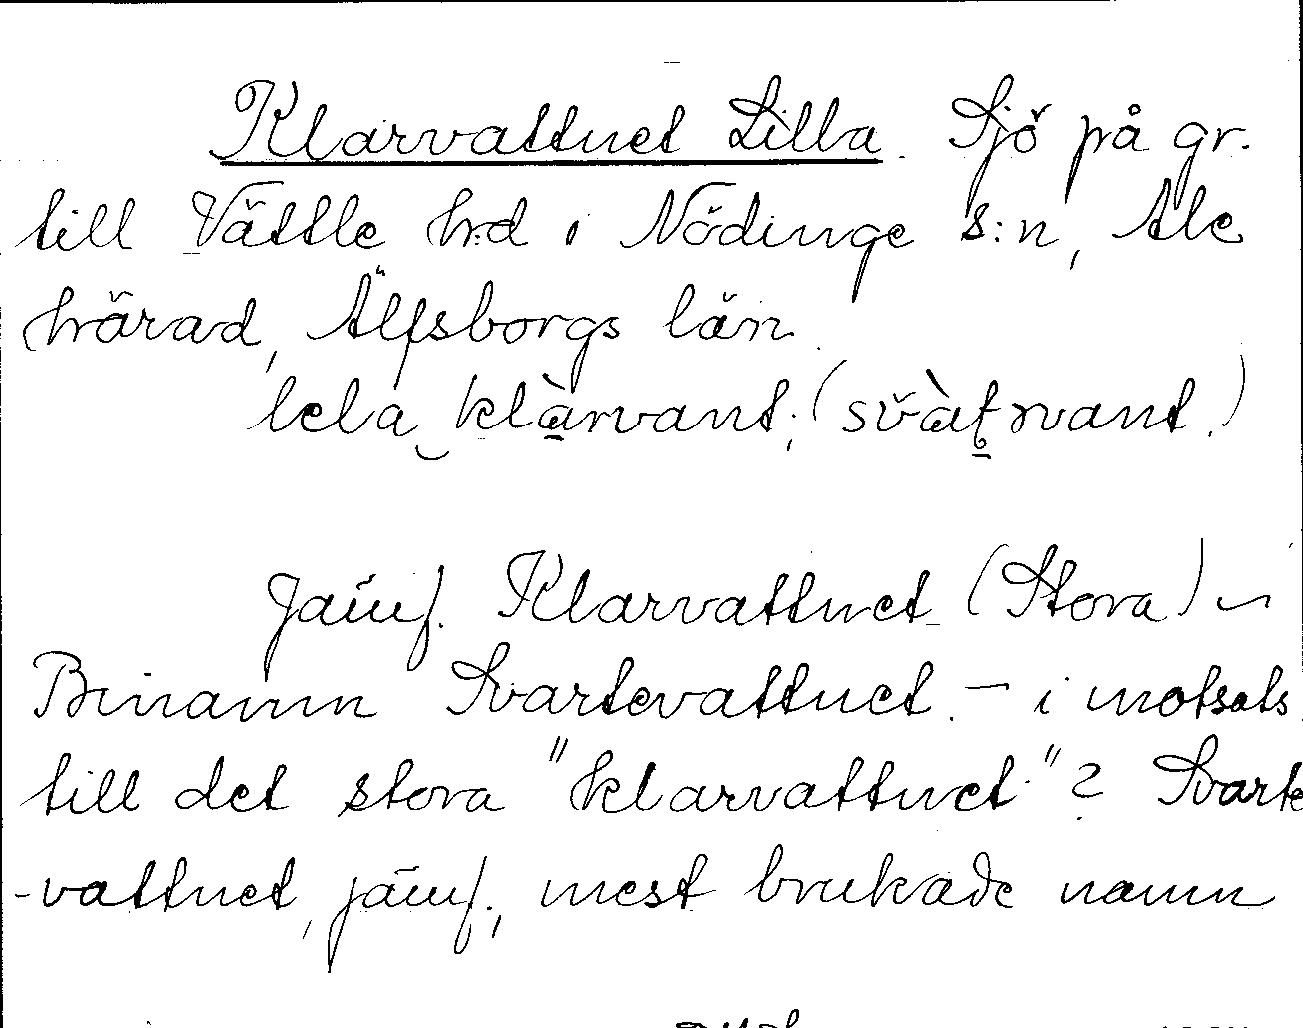 Klarvattnet Lilla. Sjö på gr.
till Vättle hd i Nödinge s:n, Ale
härad, Älfsborgs län.
lela klàrvant; (svàt̠rvant.)
Jämf. Klarvattnet (Stora) ~
Binamn Svartevattnet. - i motsats
till det stora "klarvattnet"? Svarte
-vattnet, jämf., mest brukade namn